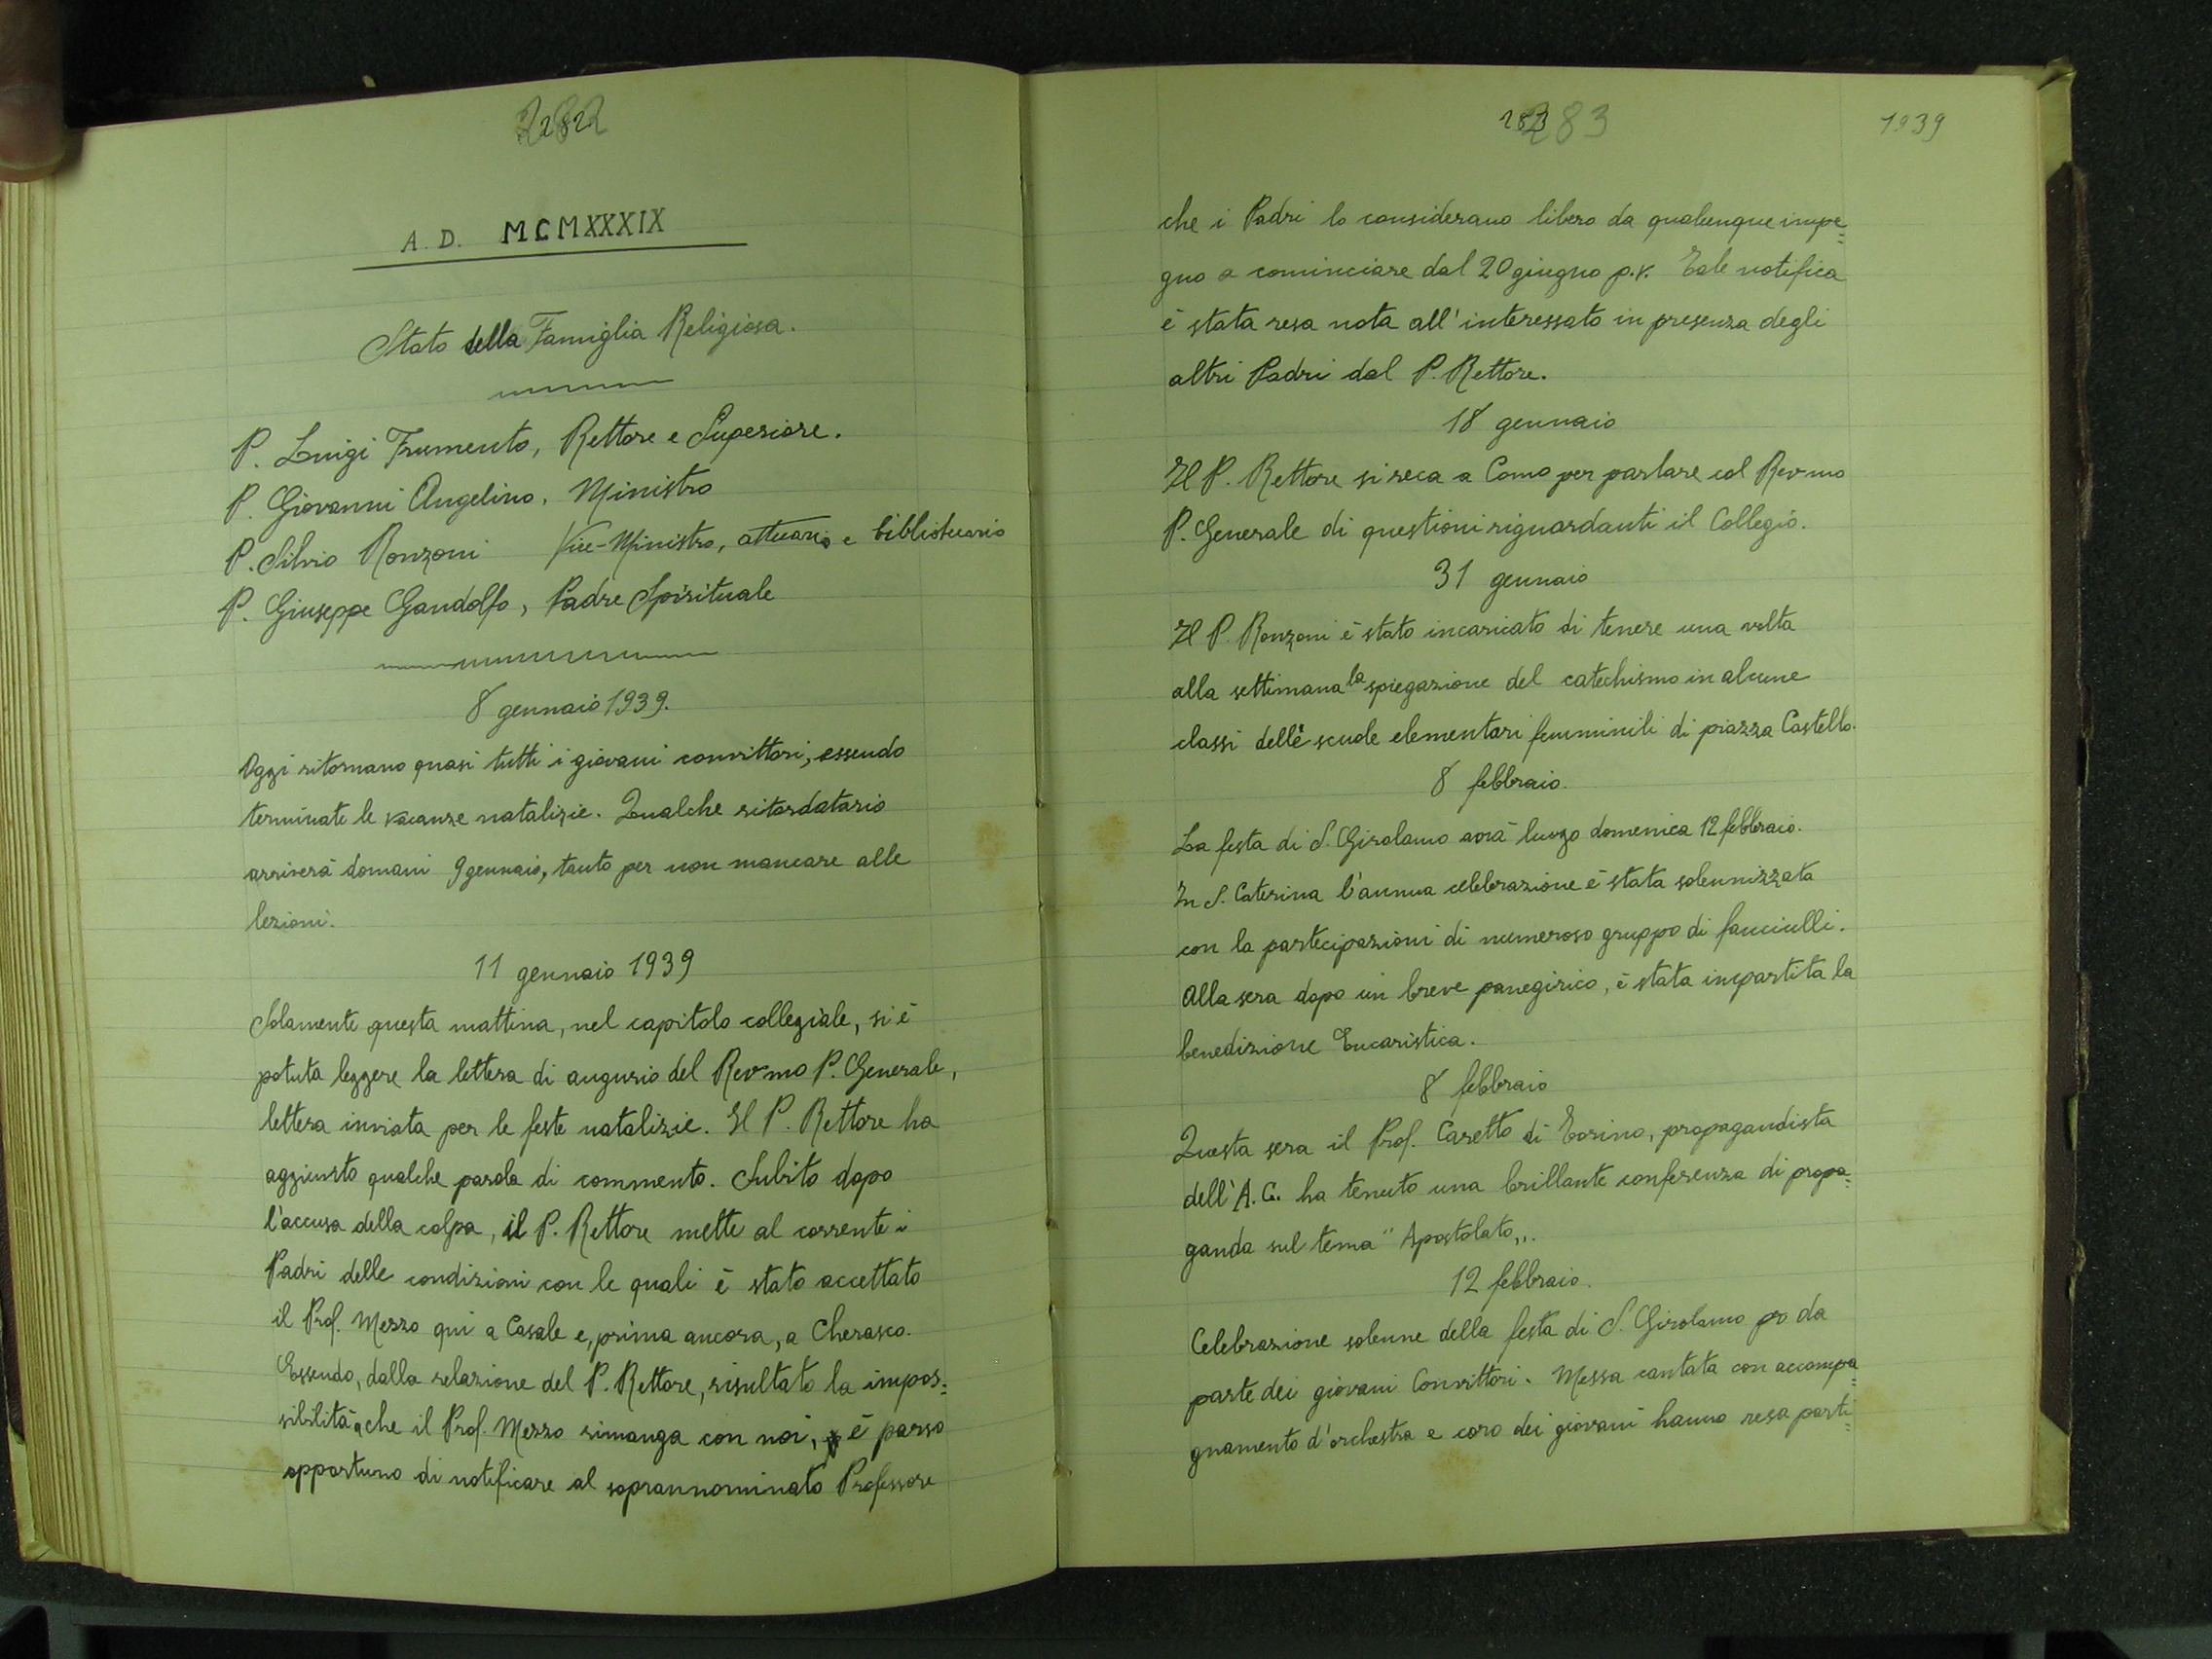 282
A. D. MCMXXXIX
Stato della Famiglia Religiosa.
P. Luigi Frumento, Rettore e Superiore.
P. Giovanni Angelino, Ministro
P. Silvio Ronzoni Vice-Ministro, attuario e bibliotecario
P. Giuseppe Gandolfo, Padre Spirituale
8 gennaio 1939.
Oggi ritornano quasi tutti i giovani convittori, essendo
terminate le vacanze natalizie. Qualche ritardatario
arriverà domani 9 gennaio, tanto per non mancare alle
lezioni.
11 gennaio 1939
Solamente questa mattina, nel capitolo collegiale, si è
potuta leggere la lettera di augurio del Rev-mo P. Generale,
lettera inviata per le feste natalizie. Il P. Rettore ha
aggiunto qualche parola di commento. Subito dopo
l'accusa della colpa, il P. Rettore mette al corrente i
Padri delle condizioni con le quali è stato accettato
il Prof. Mezzo qui a Casale e, prima ancora, a Cherasco.
Essendo, dalla relazione del P. Rettore, risultato la impos=
sibilità che il Prof. Mezzo rimanga con noi, è parso
opportuno di notificare al soprannominato Professore
283
1939
che i Padri lo considerano libero da qualunque impe=
gno a cominciare dal 20 giugno p.v. Tale notifica
è stata resa nota all'interessato in presenza degli
altri Padri dal P. Rettore.
18 gennaio
Il P. Rettore si reca a Como per parlare col Rev-mo
P. Generale di questioni riguardanti il Collegio.
31 gennaio
Il P. Ronzoni è stato incaricato di tenere una volta
alla settimana la spiegazione del catechismo in alcune
classi delle scuole elementari femminili di piazza Castello.
8 febbraio.
La festa di S. Girolamo avrà luogo domenica 12 febbraio.
In S. Caterina l'annua celebrazione è stata solennizzata
con la partecipazioni di numeroso gruppo di fanciulli.
Alla sera dopo un breve panegirico, è stata impartita la
benedizione Eucaristica.
8 febbraio
Questa sera il Prof. Caretto di Torino, propagandista
dell'A.C. ha tenuto una brillante conferenza di propa=
ganda sul tema "Apostolato,,.
12 febbraio.
Celebrazione solenne della festa di S. Girolamo da
parte dei giovani Convittori. Messa cantata con accompa=
gnamento d'orchestra e coro dei giovani hanno resa parti=